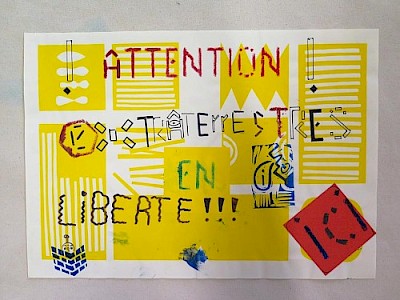 ! ÂTTENTION !
EXTRÂTERRESTRES
EN
LiBERTE !!!